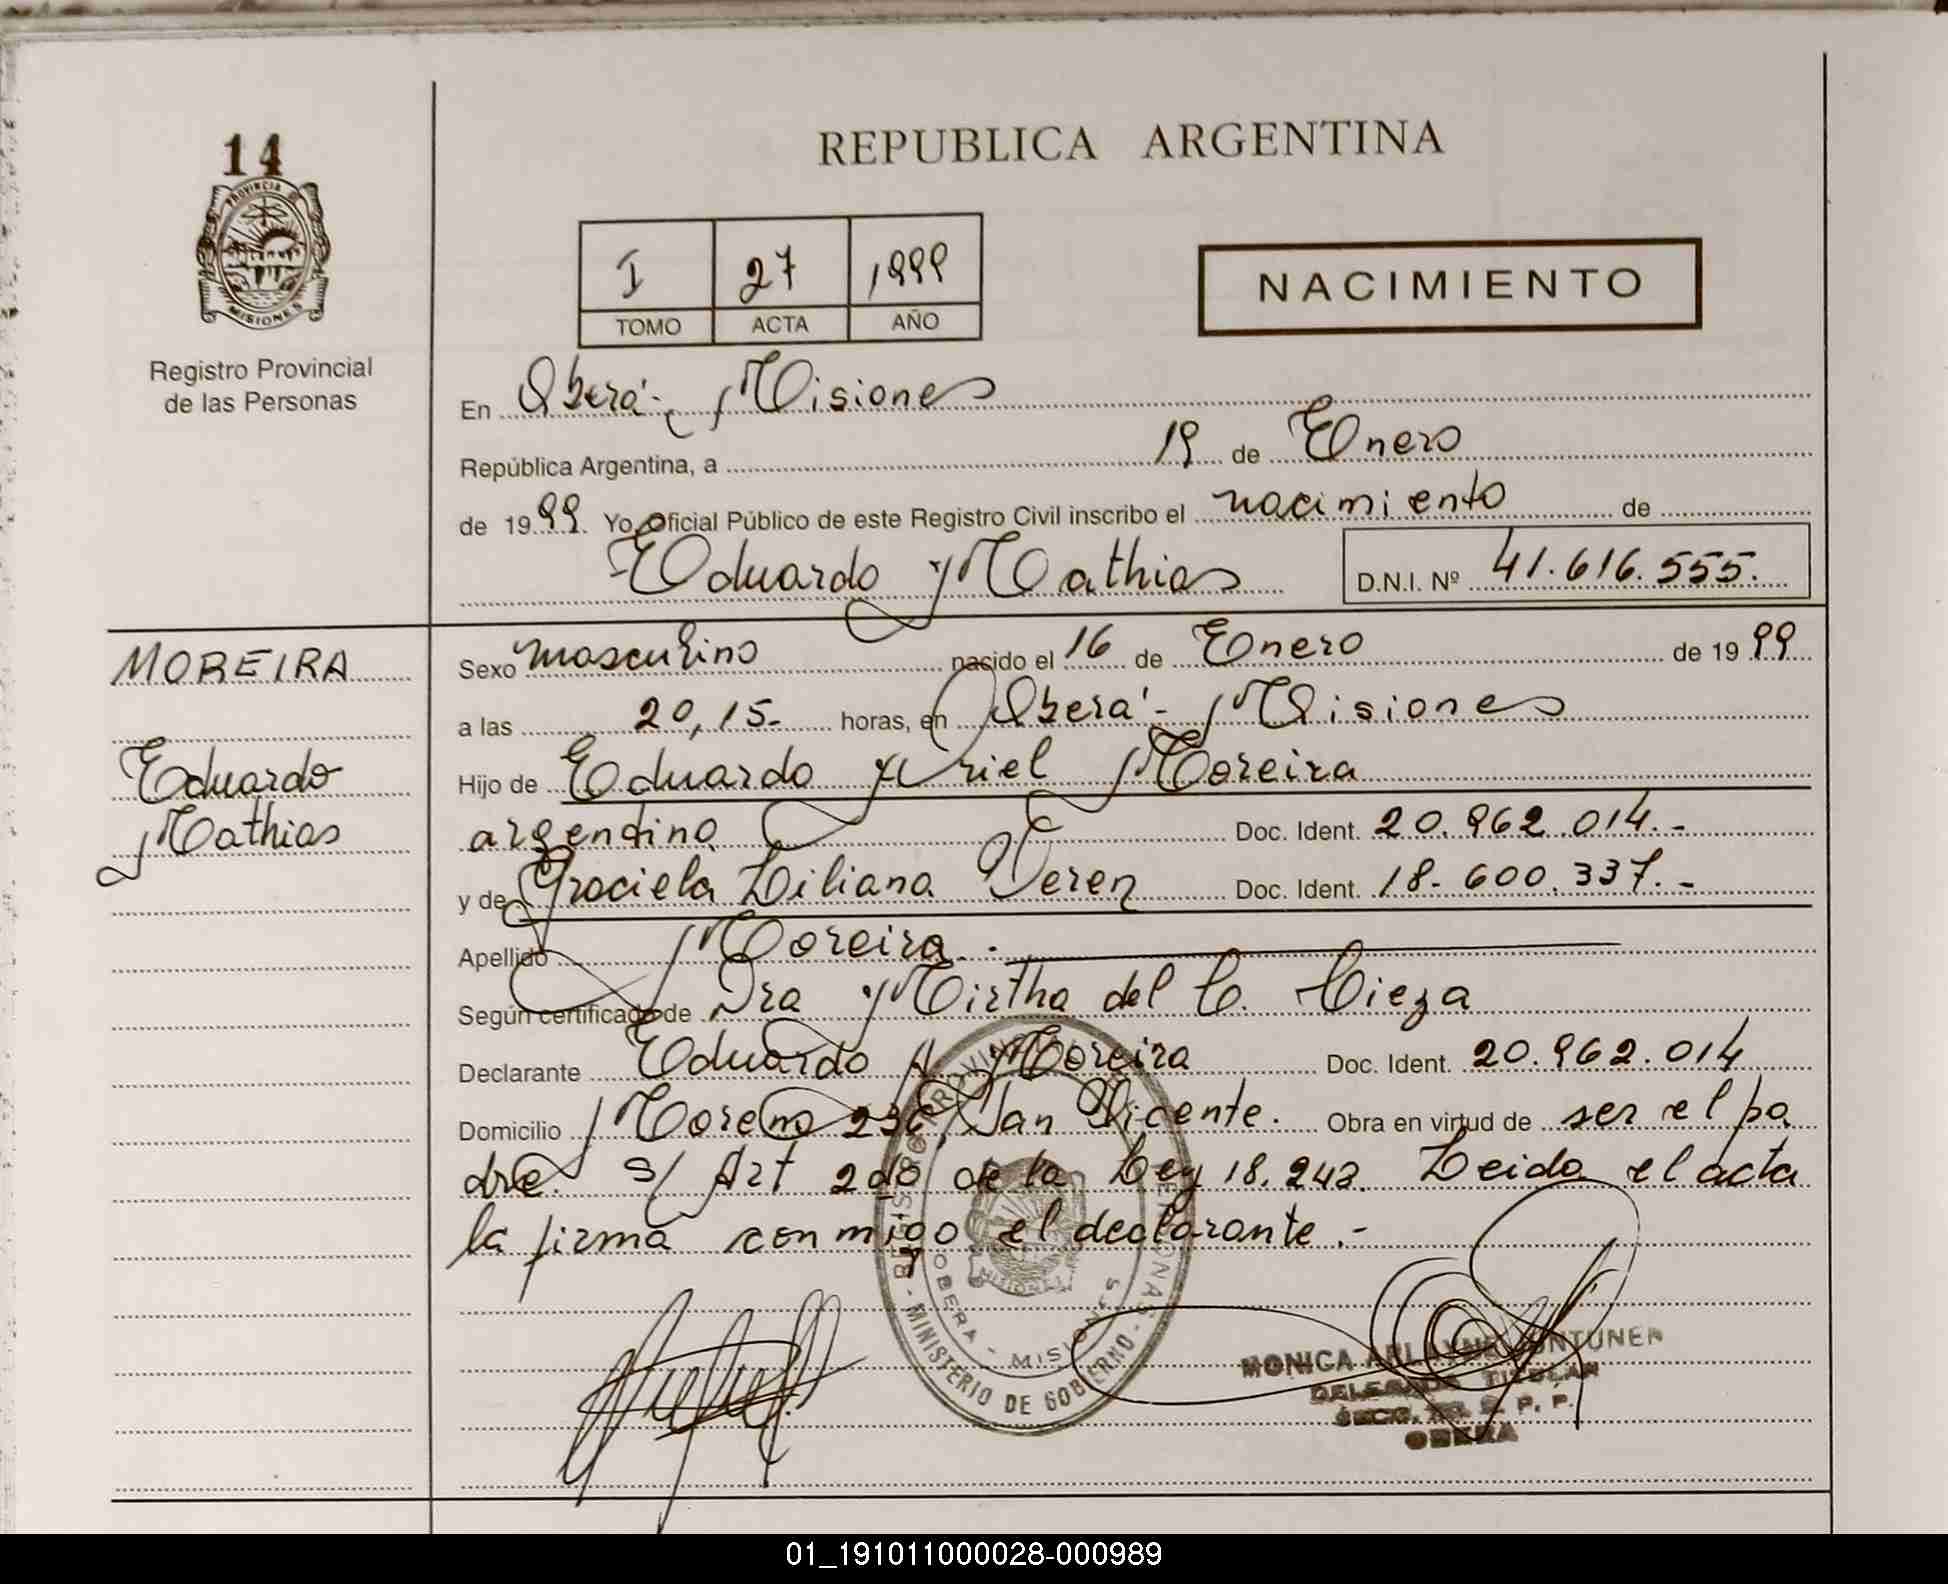 14
PROVINCIA
MISIONES
Registro Provincial
de las Personas
REPUBLICA ARGENTINA
I 27 1999
TOMO ACTA AÑO
NACIMIENTO
En Oberá-, Misiones
República Argentina, a 19 de Enero
de 1999 Yo Oficial Público de este Registro Civil inscribo el nacimiento de
Eduardo Mathias D.N.I. Nº 41.616.555.
MOREIRA
Eduardo
Mathias
Sexo masculino nacido el 16 de Enero de 1999
a las 20,15- horas, en Oberá- Misiones
Hijo de Eduardo Ariel Moreira
argentino Doc. Ident. 20.962.014.-
y de Graciela Liliana Doc. Ident. 18.600.337.-
Apellido Moreira.-
Según certificado de Dra Mirtha del C. Cieza
Declarante Eduardo A. Moreira Doc. Ident. 20.962.014
Domicilio Moreno 236, San Vicente. Obra en virtud de ser el pa
dre. S/ Art 2do de la Ley 18.248. Leida el acta
la firma conmigo el declarante.-
OBERA - MISIONES
MINISTERIO DE GOBIERNO
MONICA
DELEGADA TITULAR
OBERA
01_191011000028-000989